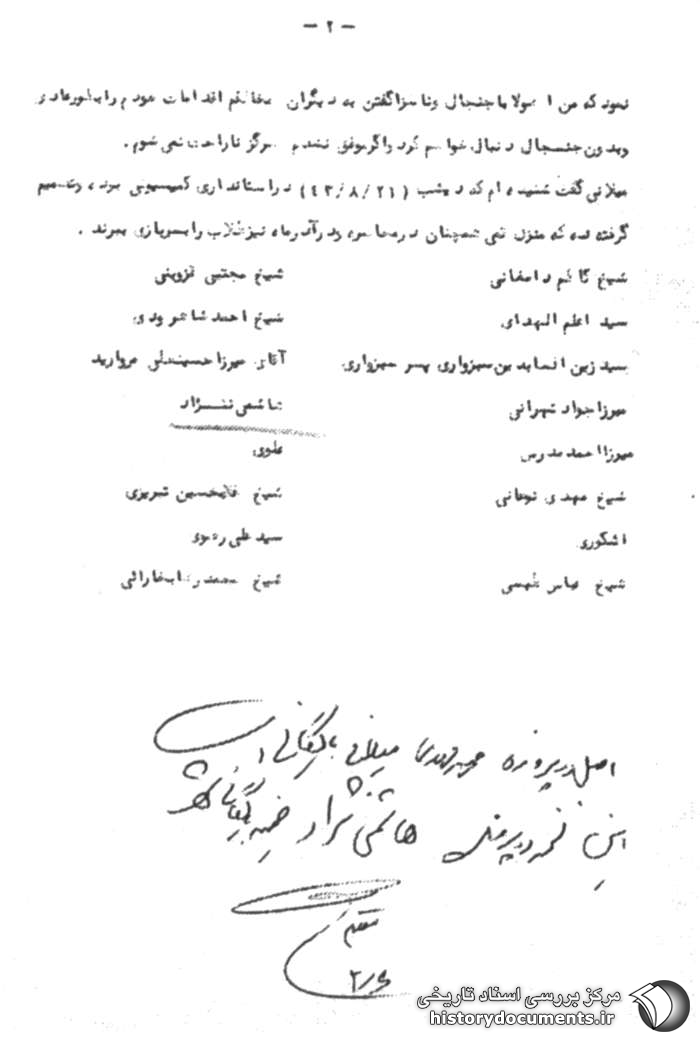 - ۲ -
نمود که من اصولا با جنجال وناسزا گفتن به دیگران مخالفم اقدامات خودم را بطور عادی
وبدون جنجال دنبال خواهم کرد واگر موفق نشدم هرگز ناراحت نمی شوم .
میلانی گفت شنیده ام که دیشب (۴۳/۸/۲۱) در استانداری کمیسیونی بوده و تصمیم
گرفته شده که منزل قمی همچنان در محاصره و در آذرماه نیز طلاب را بسربازی ببرند .
شیخ کاظم دامغانی شیخ مجتبی قزوینی
سید اعلم الهدای شیخ احمد شاهرودی
سید زین العابدین سبزواری پسر سبزواری آقای میرزا حسینعلی مروارید
میرزا جواد تهرانی هاشمی نژاد
میرزا احمد مدرس علوی
شیخ مهدی نوغانی شیخ غلامحسین تبریزی
اشکوری سید علی رضوی
شیخ عباس طبسی شیخ محمد رضا
اصل در پرونده میلانی بایگانی
این نسخه در پرونده هاشمی نژاد ضمیمه بایگانی شود
مرکز بررسی اسناد تاریخی
historydocuments.ir